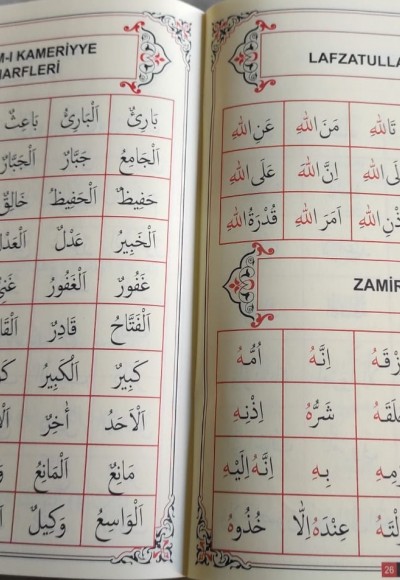 M-I KAMERİYYE
HARFLERİ
بَارِئٌ اَلْبَارِئُ بَاعِثٌ
اَلْجَامِعُ جَبَّارٌ اَلْجَبَّارُ
حَفِيظٌ اَلْحَفِيظُ خَالِقٌ
اَلْخَبِيرُ عَدْلٌ اَلْعَدْلُ
غَفُورٌ اَلْغَفُورُ
اَلْفَتَّاحُ قَادِرٌ
كَبِيرٌ اَلْكَبِيرُ
اَلْاَحَدُ اٰخِرٌ
مَانِعٌ اَلْمَانِعُ
اَلْوَاسِعُ وَكِيلٌ
LAFZATULLA
تَاللهِ مَنَ اللهِ عَنِ اللهِ
اِنَّ اللهَ عَلَى اللهِ
اَمَرَ اللهُ قُدْرَةُ اللهِ
ZAMİR
اِنَّهُ اُمُّهُ
شَرُّهُ اِذْنِهِ
بِهِ اِنَّهُ اِلَيْهِ
عِنْدَهُ اِلَّا خُذُوهُ
26